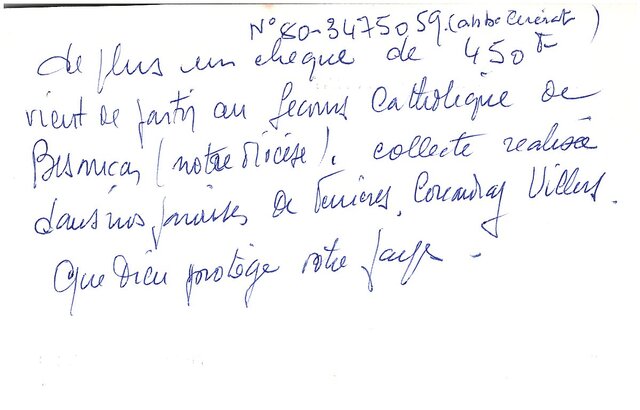 N° 80-3475059. (abbé
de plus un chèque de 450 F
vient de partir au Secours Catholique de
Besançon (notre diocèse). collecte realisée
dans nos paroisses de Ferrières, Corcondray Villers.
Que Dieu protège votre pays.